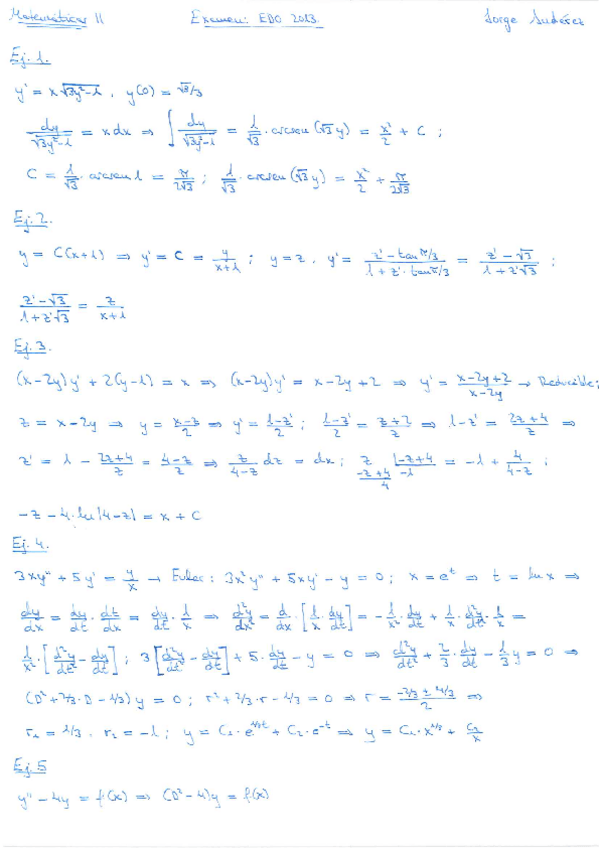 Matemáticas II Examen: EDO 2013. Jorge
Ej. 1.
y' = x√(3y²-1), y(0) = √3/3
dy/√(3y²-1) = x dx ⇒ ∫ dy/√(3y²-1) = 1/√3 · arcsen(√3 y) = x²/2 + C ;
C = 1/√3 · arcsen 1 = π/2√3 ; 1/√3 · arcsen(√3 y) = x²/2 + π/2√3
Ej. 2.
y = C(x+1) ⇒ y' = C = y/(x+1) ; y = z, y' = (z' - tan π/3)/(1 + z'·tan π/3) = (z' - √3)/(1 + z'√3) ;
(z' - √3)/(1 + z'√3) = z/(x+1)
Ej. 3.
(x-2y)y' + 2(y-1) = x ⇒ (x-2y)y' = x-2y+2 ⇒ y' = (x-2y+2)/(x-2y) → Reducible;
z = x-2y ⇒ y = (x-z)/2 ⇒ y' = (1-z')/2 ; (1-z')/2 = (z+2)/z ⇒ 1-z' = (2z+4)/z ⇒
z' = 1 - (2z+4)/z = (4-z)/z ⇒ z/(4-z) dz = dx ; z |-z+4 -z+4 -1 4 = -1 + 4/(4-z) ;
-z - 4·ln|4-z| = x + C
Ej. 4.
3xy'' + 5y' = y/x → Euler: 3x²y'' + 5xy' - y = 0 ; x = e^t ⇒ t = ln x ⇒
dy/dx = dy/dt · dt/dx = dy/dt · 1/x ⇒ d²y/dx² = d/dx · [1/x · dy/dt] = -1/x² · dy/dt + 1/x · d²y/dt² · 1/x =
1/x² · [d²y/dt² - dy/dt] ; 3[d²y/dt² - dy/dt] + 5·dy/dt - y = 0 ⇒ d²y/dt² + 2/3 · dy/dt - 1/3 y = 0 ⇒
(D² + 2/3·D - 1/3) y = 0 ; r² + 2/3·r - 1/3 = 0 ⇒ r = (-2/3 ± 4/3)/2 ⇒
r₁ = 1/3, r₂ = -1 ; y = C₁·e^(1/3 t) + C₂·e^(-t) ⇒ y = C₁·x^(1/3) + C₂/x
Ej. 5
y'' - 4y = f(x) ⇒ (D² - 4)y = f(x)